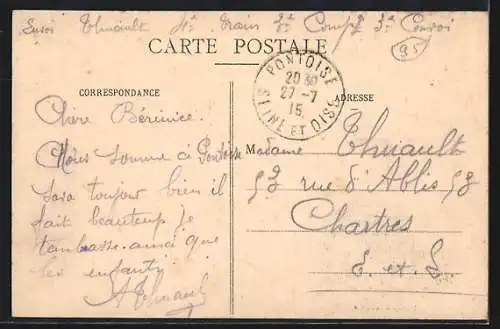 Envoi Thuiault 4e Train 8e Compg 3e Convoi
CARTE POSTALE
95
PONTOISE
20 30
27 - 7
15
SEINE ET OISE
CORRESPONDANCE
ADRESSE
Chère Bérénice.
Nous somme à Pontoise
sava toujour bien il
fait beautemp je
tembrasse ainsi que
les enfants
AThuiault
Madame Thuiault
53 rue d'Ablis 53
Chartres
E. et L.